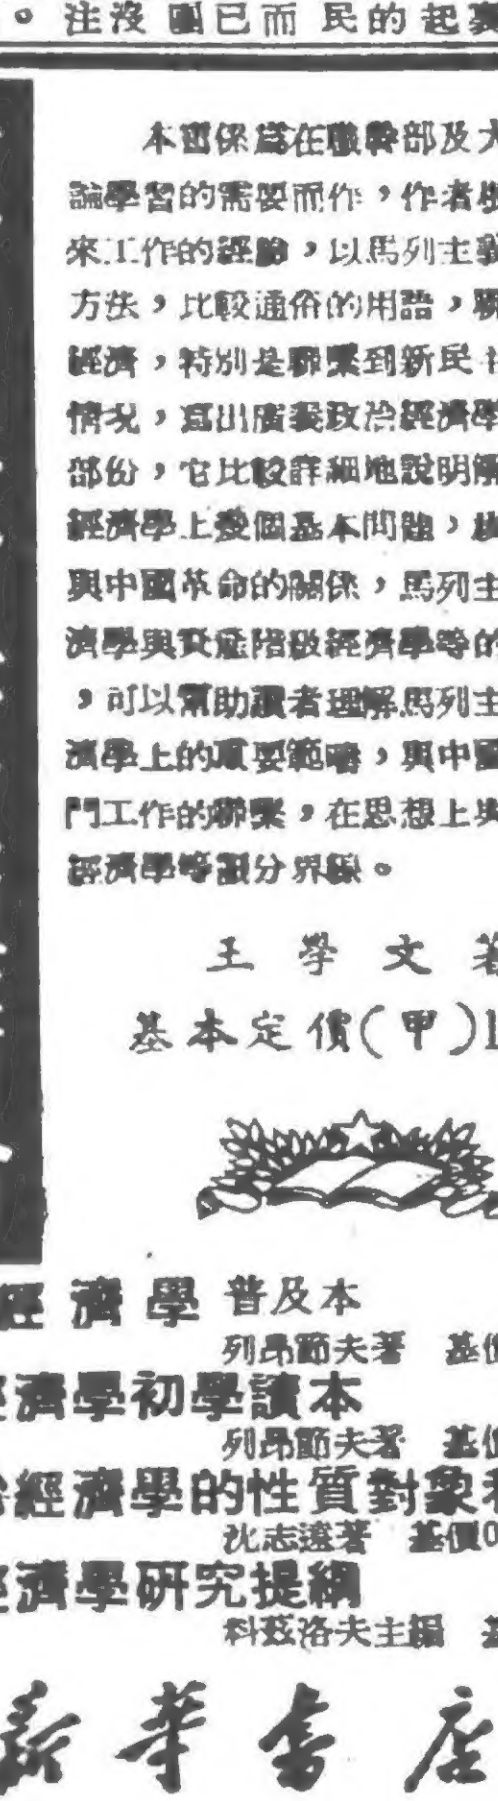 。注沒 國已而 民的起
本書係爲在職幹部及大
論學習的需要而作，作者
來工作的經驗，以馬列主義
方法，比較通俗的用語，聯
經濟，特別是聯繫到新民主
情況，寫出廣義政治經濟學
部份，它比較詳細地說明解
經濟學上幾個基本問題，
與中國革命的關係，馬列主
濟學與資產階級經濟學等的
，可以幫助讀者理解馬列主
濟學上的重要範疇，與中國
門工作的聯繫，在思想上與
經濟學等劃分界線。
王學文著
基本定價(甲)1
經濟學 普及本
列昂節夫著 基價
經濟學初學讀本
列昂節夫著 基價
經濟學的性質對象和
沈志遠著 基價0
經濟學研究提綱
科茲洛夫主編 基
新華書店